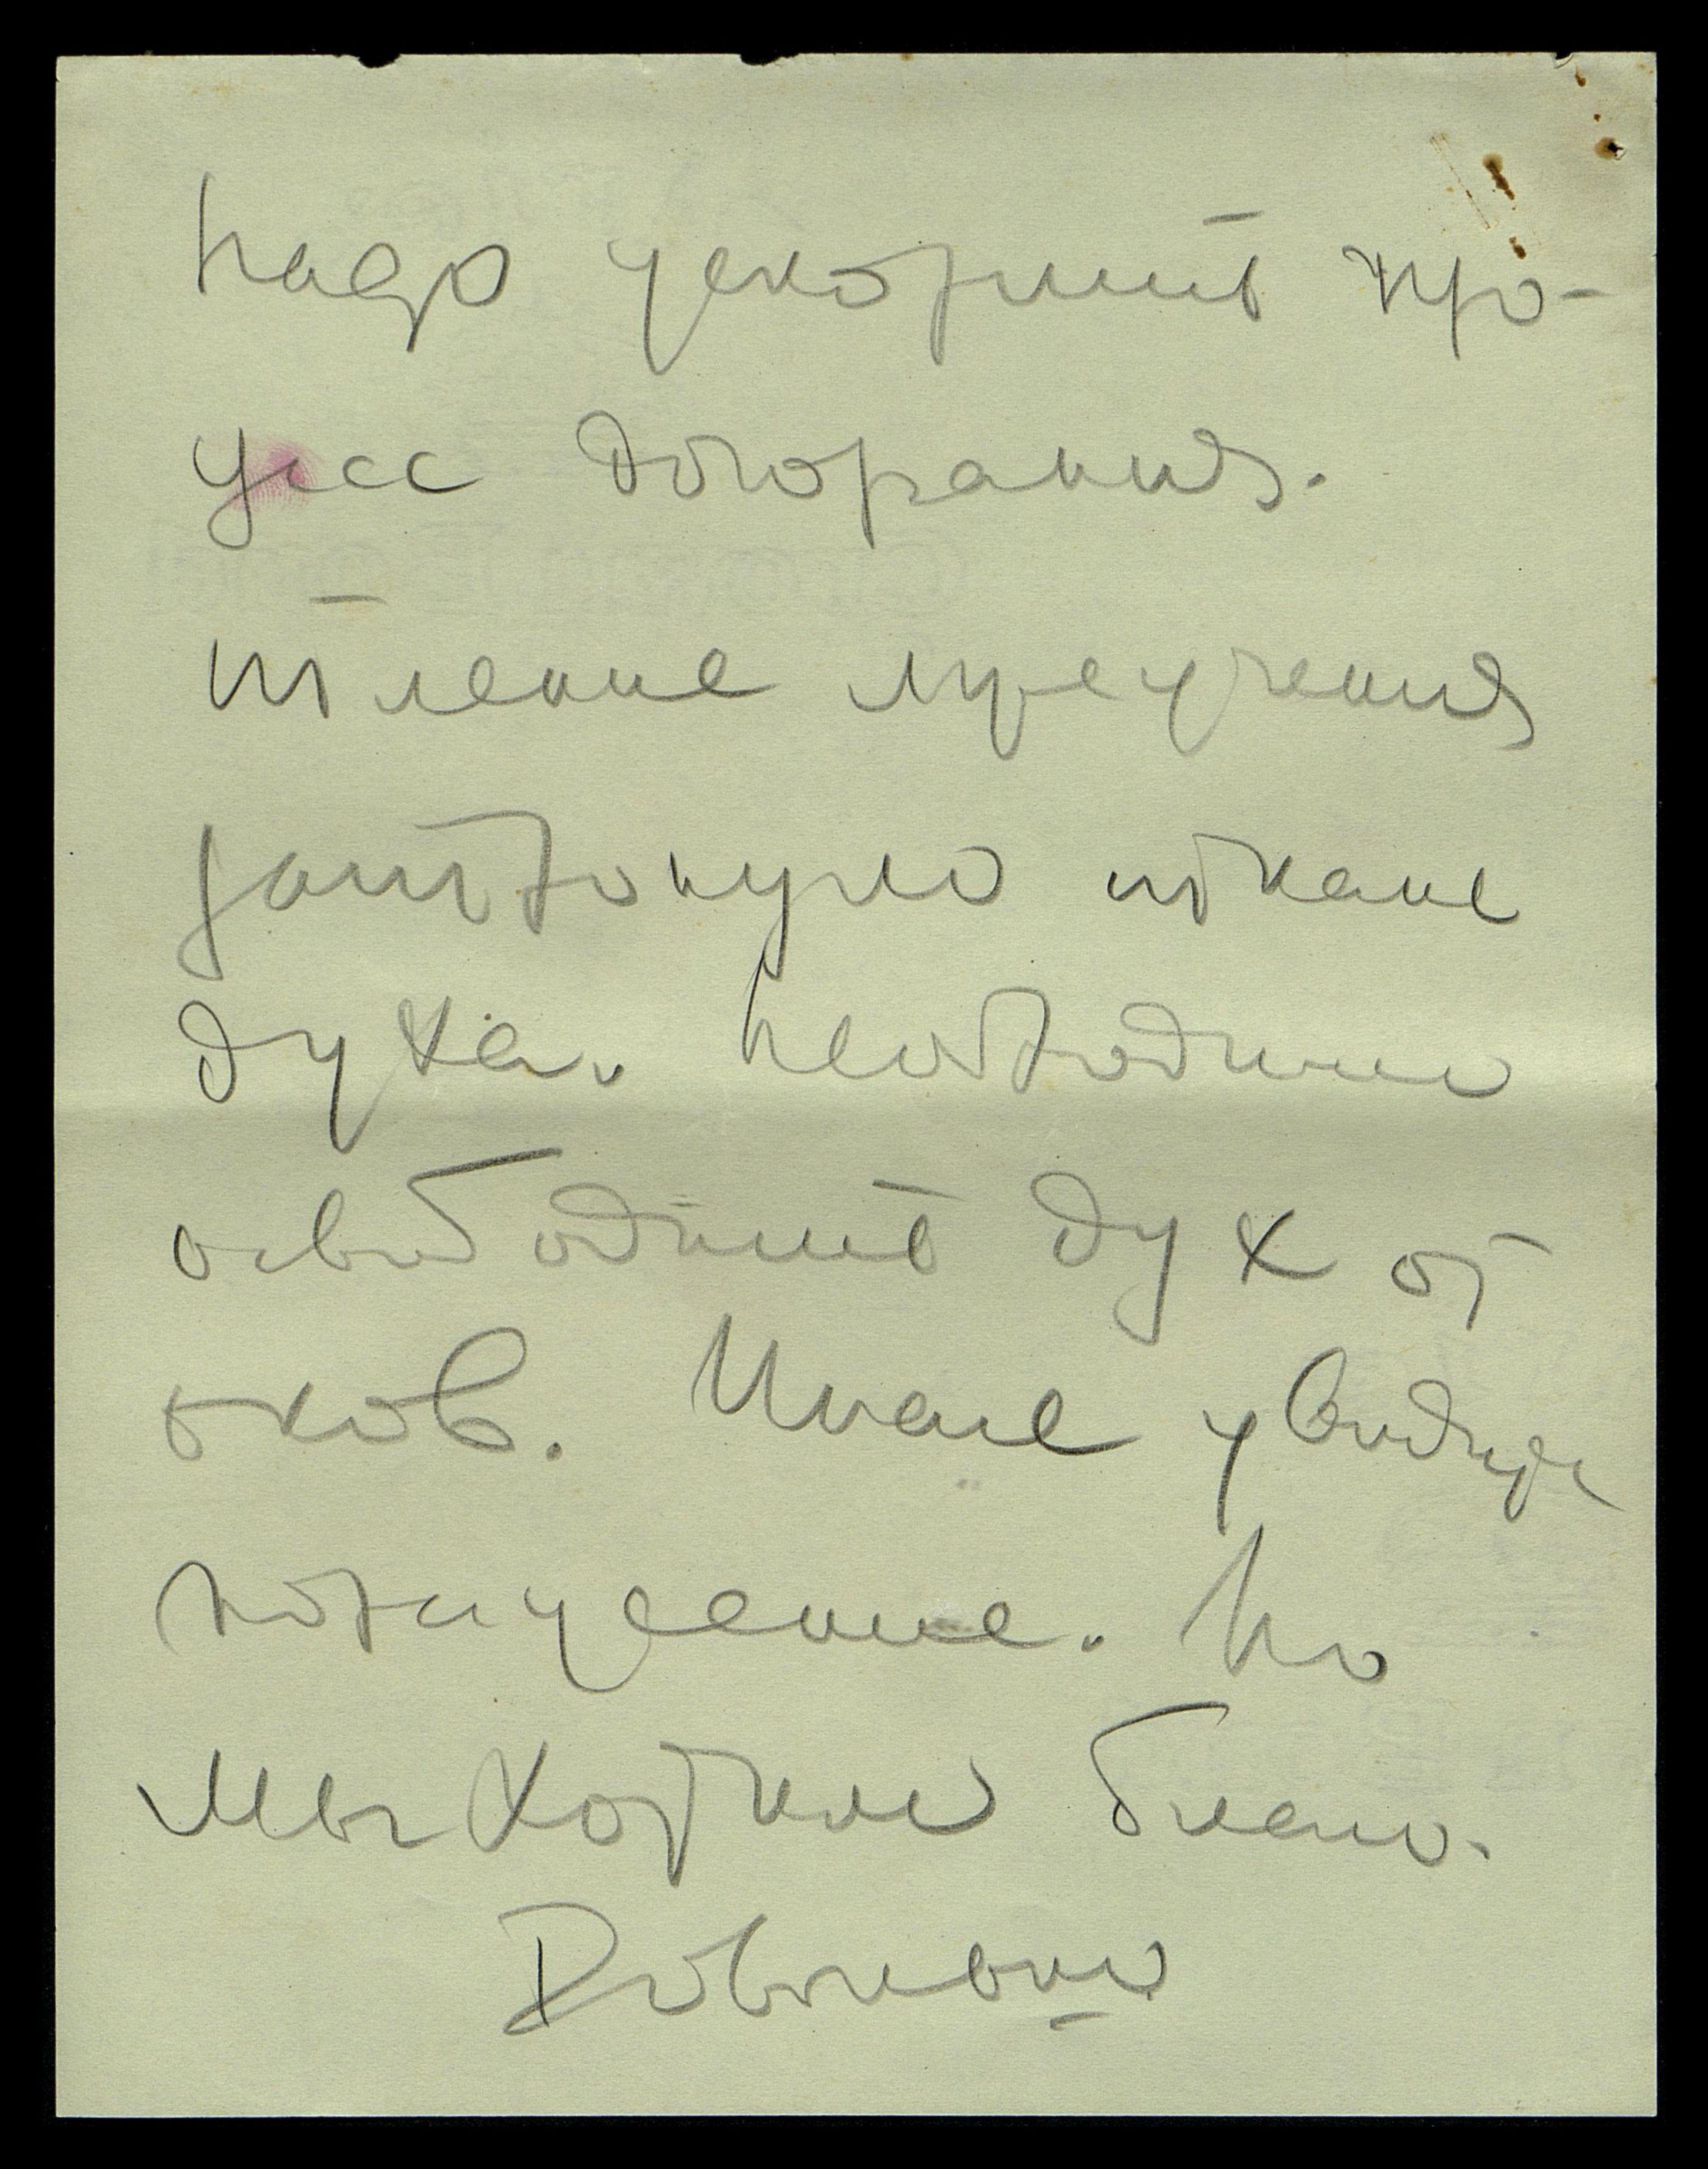 Надо ускорить про-
цесс догорания.
Тление
затронуло ткани
духа. Необходимо
освободить дух от
оков. Иначе увидим
Но
мы хотим блага.
Довольно